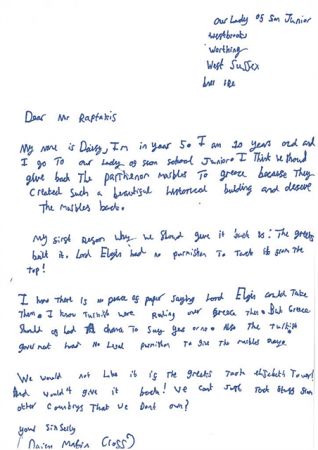 our Lady of Sion Junior
Westbrooke
Worthing
West Sussex
Dear Mr Raptakis
My name is Daisy, I'm in year 5. I am 10 years old and
I go To our Lady of sion school Junior. I Think we should
give back The parthenon marbles To greece because They
created such a beautiful historical bulding and deserve
The marbles back.
My first reason why we should give it back is: The greeks
built it. Lord Elgin had no purmishon To Took it from the
top!
I know There is no peace of paper saying Lord Elgin could Take
Them. I know Turkish were Ruling over Greece Then. But Greece
Should of had A chance To say yes or no. Also The Turkish
goverment had No Legal purmishon to give The marbles away.
We would not Like it if The greeks Took elizabeth Tower!
And wouldn't give it back! We cant Just Took stuff from
other Countrys That we Dont own?
your Sinserly
(Cross)